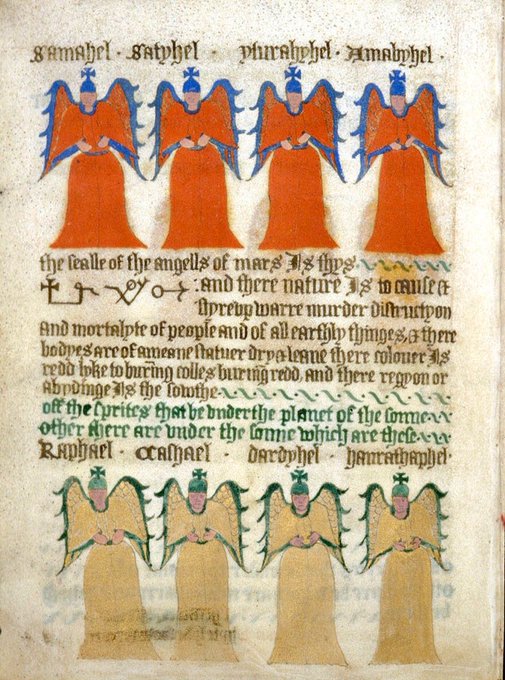 Samahel · Satyhel · yturahyhel · Amabyhel ·
the sealle of the angells of mars Is thys
: and there nature Is to cause &
styreup warre murder distructyon
and mortalyte of people and of all earthly thinges, & there
bodyes are of a meane statuer dry & leane there colouer Is
redd lyke to burīng colles burīng redd, and there regyon or
abydinge Is the sowthe
off the sprites that be vnder the planet of the sonne
other there are vnder the sonne which are these
Raphael · Cashael · dardyhel · hanrathaphel ·